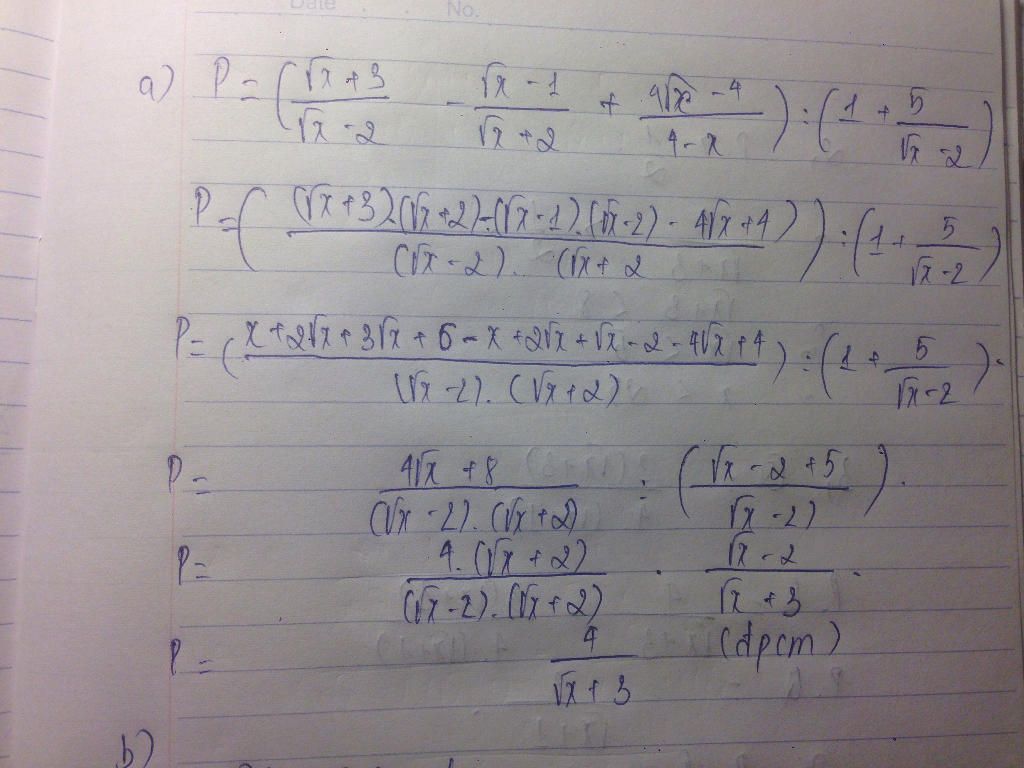 Date . . No.
a) P = ( (√x + 3)/(√x - 2) - (√x - 1)/(√x + 2) + (4√x - 4)/(4 - x) ) : ( 1 + 5/(√x - 2) )
P = ( ((√x + 3).(√x + 2) - (√x - 1).(√x - 2) - 4√x + 4)/((√x - 2). (√x + 2) ) : ( 1 + 5/(√x - 2) )
P = ( (x + 2√x + 3√x + 6 - x + 2√x + √x - 2 - 4√x + 4)/((√x - 2). (√x + 2)) ) : ( 1 + 5/(√x - 2) ).
P = (4√x + 8)/((√x - 2). (√x + 2)) : ( (√x - 2 + 5)/(√x - 2) ).
P = (4. (√x + 2))/((√x - 2). (√x + 2)) . (√x - 2)/(√x + 3) .
P = 4/(√x + 3) (đpcm)
b)